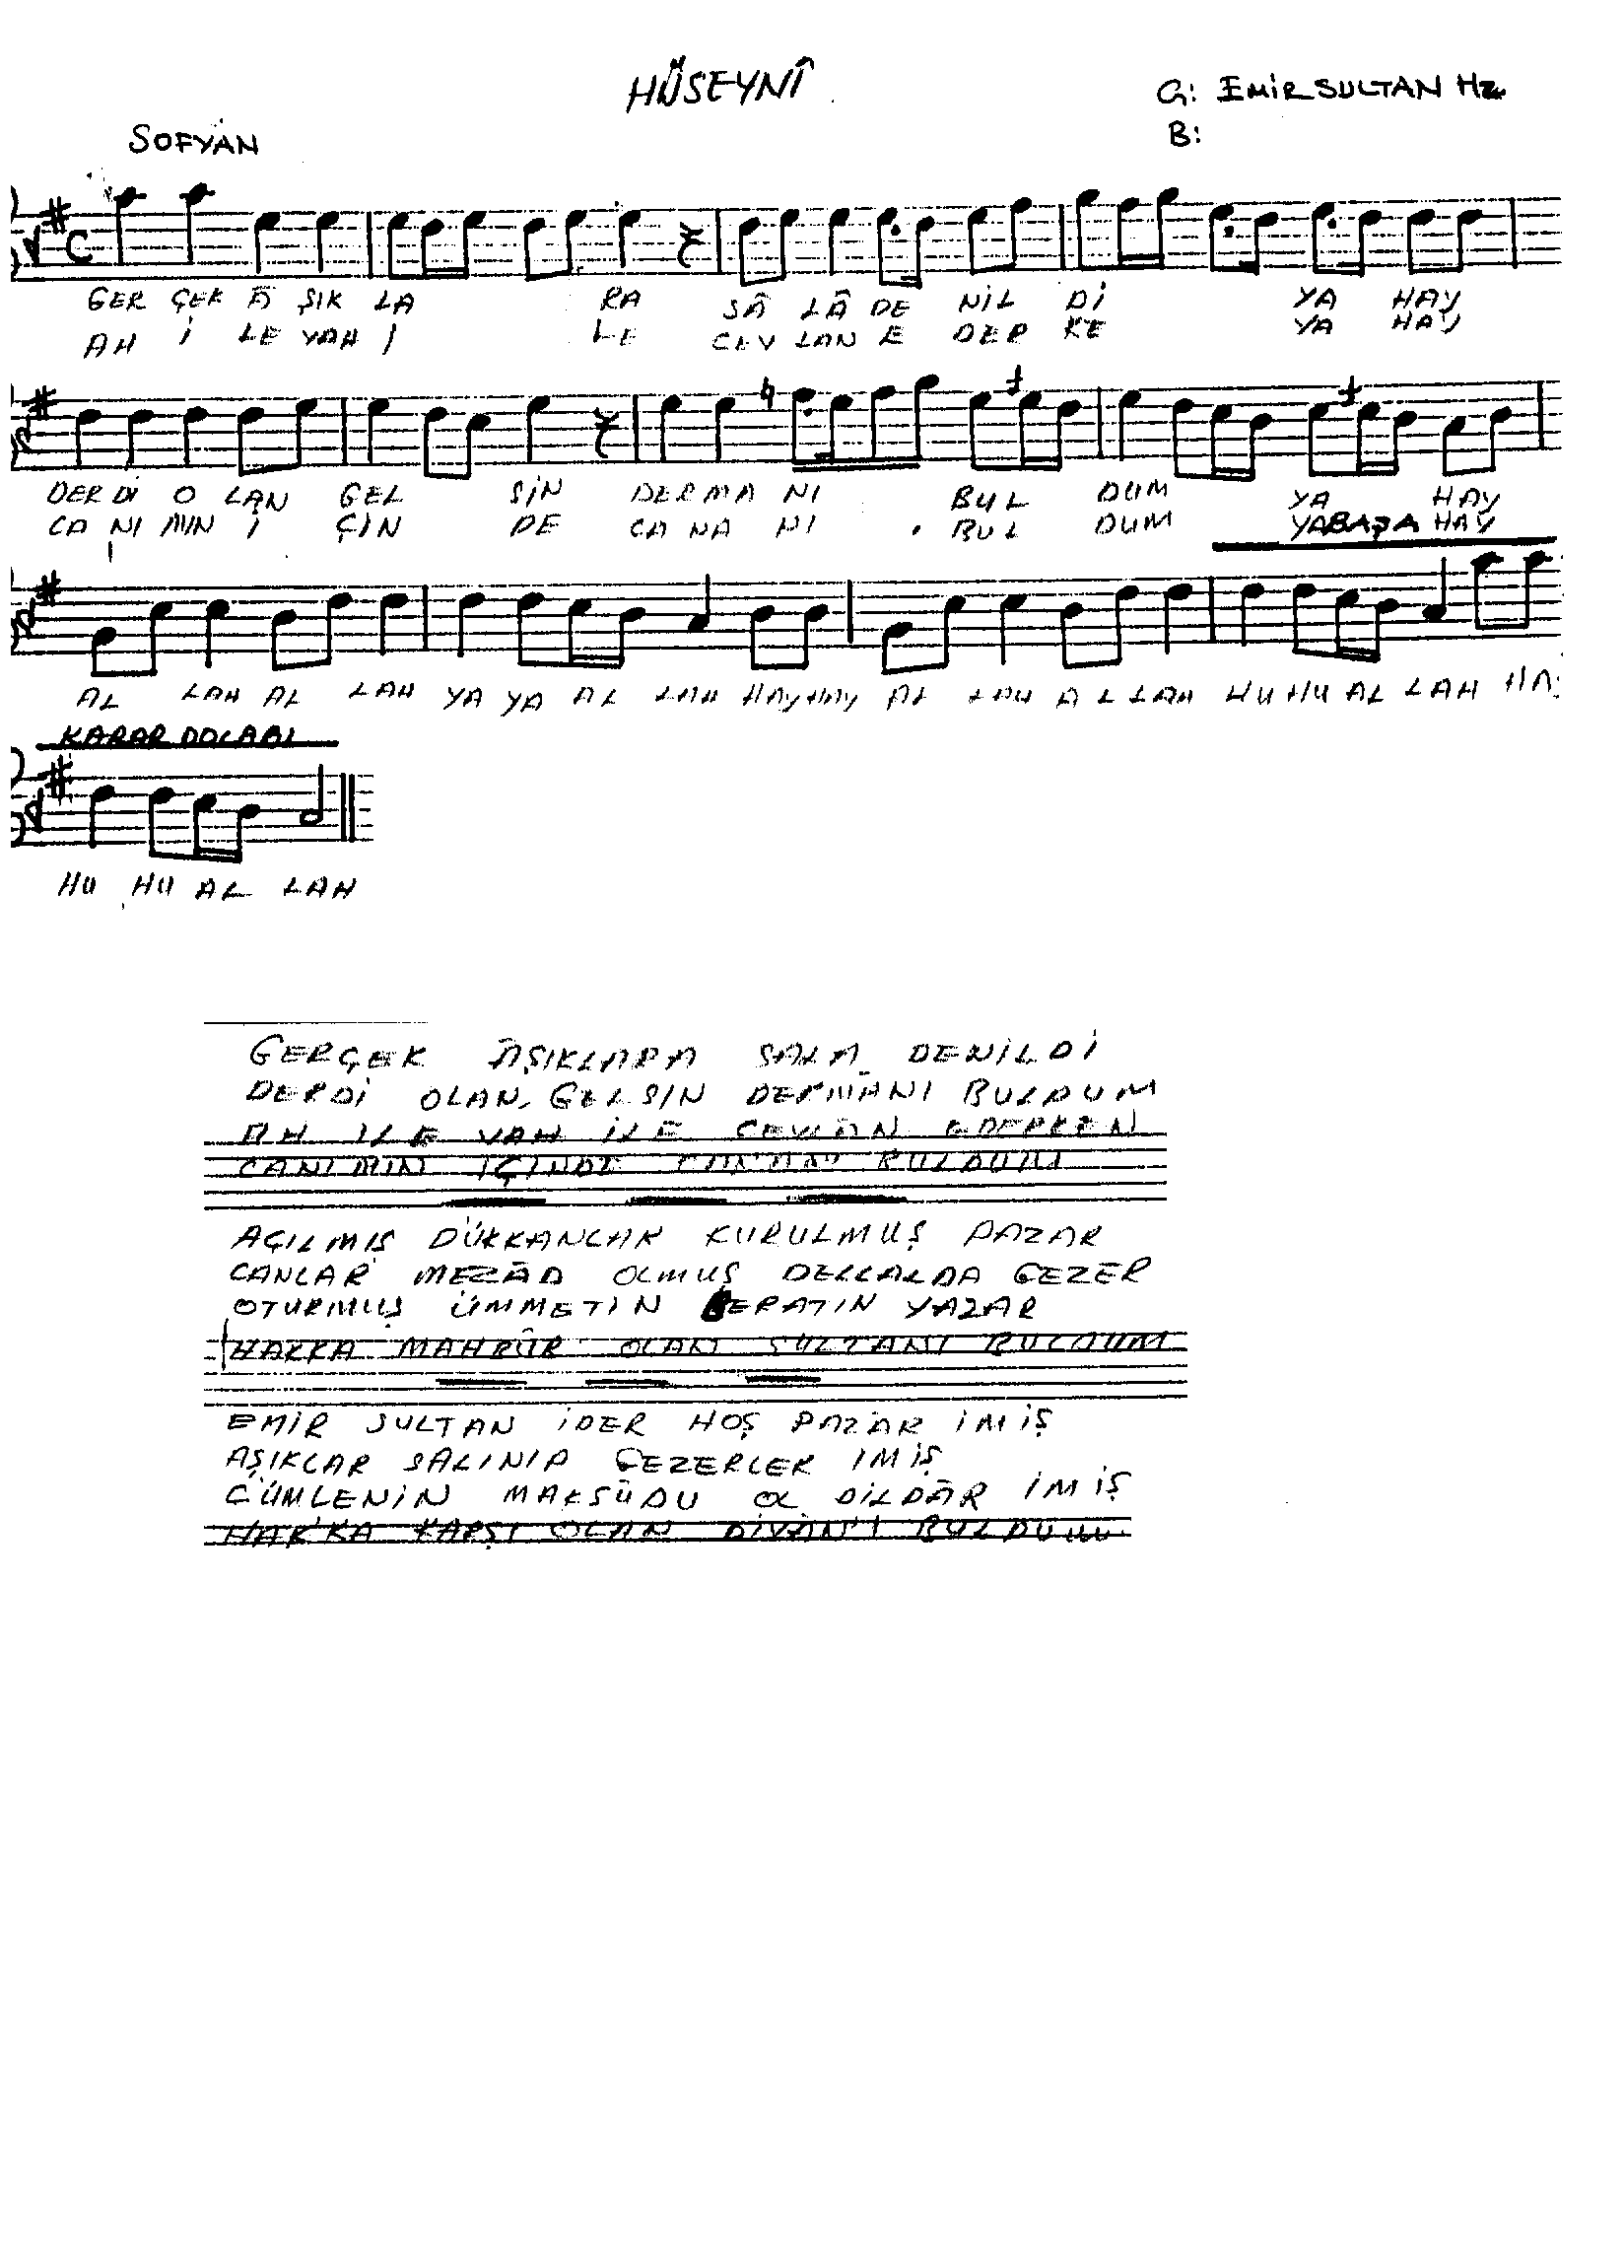 HÜSEYNÎ
G: EMİR SULTAN Hz.
B:
SOFYAN
GER ÇEK Â ŞIK LA RA SÂ LÂ DE NİL Dİ YA HAY
AH İ LE VAH İ LE CEV LAN E DER KE YA HAY
DER Dİ O LAN GEL SİN DERMA NI BUL DUM YA HAY
CA NI MIN İ ÇİN DE CA NA NI BUL DUM YA BAŞA HAY
AL LAH AL LAH YA YA AL LAH HAY HAY AL LAH AL LAH HU HU AL LAH HAY
KARAR DOLABI
HU HU AL LAH
GERÇEK ÂŞIKLARA SALA DENİLDİ
DERDİ OLAN GELSIN DERMÂNI BULDUM
AH İLE VAH İLE CEVLÂN EDERKEN
CANIMIN İÇİNDE BULDUM
AÇILMIŞ DÜKKANLAR KURULMUŞ PAZAR
CANLAR MEZÂD OLMUŞ DELLALDA GEZER
OTURMUŞ ÜMMETİN BERATIN YAZAR
HAKKA MAHBÛB OLAN SULTANI BULDUM
EMİR SULTAN İDER HOŞ PAZAR İMİŞ
AŞIKLAR SALINIP GEZERLER İMİŞ
CÜMLENİN MAKSÛDU OL DİLDÂR İMİŞ
HAK'KA KARŞI OLAN DİVÂN'I BULDUM